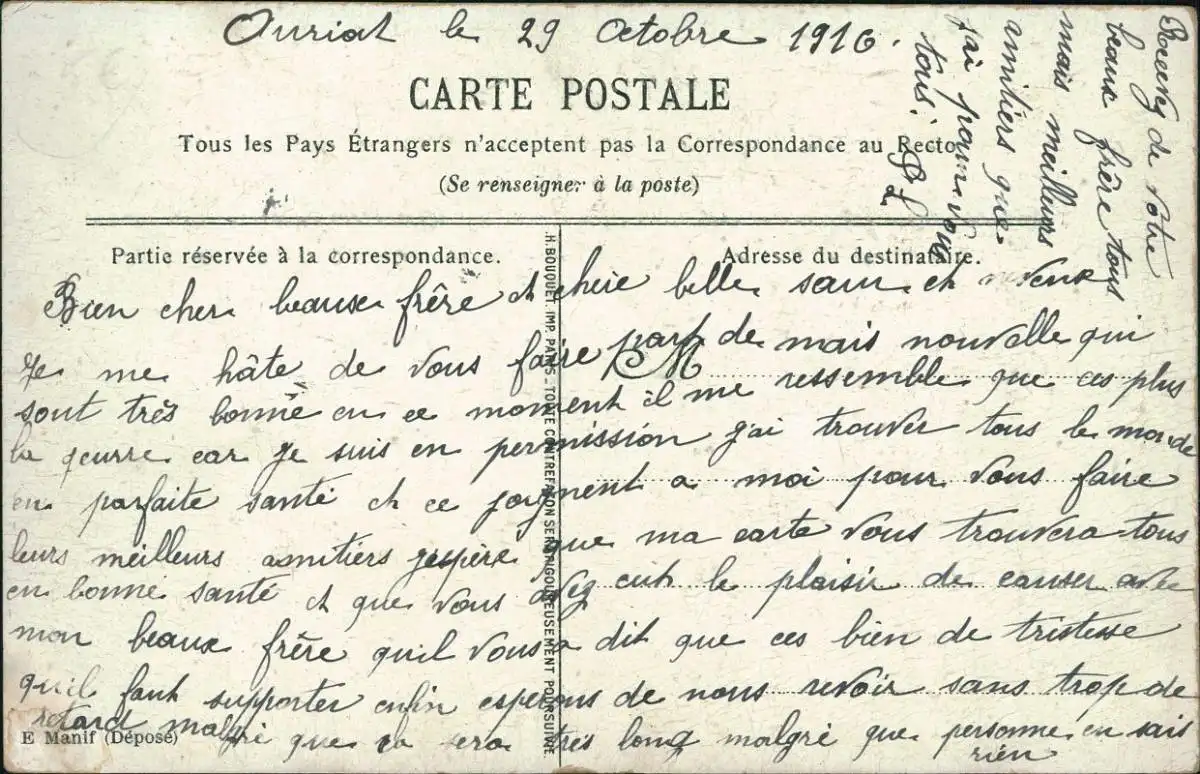 Auriat le 29 Octobre 1916.
CARTE POSTALE
Tous les Pays Étrangers n'acceptent pas la Correspondance au Recto
(Se renseigner à la poste)
Partie réservée à la correspondance.
Adresse du destinataire.
H. BOUQUET, IMP. PARIS - TOUTE CONTREFAÇON SERA RIGOUREUSEMENT POURSUIVIE.
M
Bien cher beaux frêre et chère belle sœur et neveux
Je me hâte de vous faire part de mais nouvelle qui
sont très bonne en ce moment il me ressemble que ces plus
la geurre car je suis en permission j'ai trouver tous le monde
en parfaite santé et ce joignent a moi pour vous faire
leurs meilleurs amitiers jespère que ma carte vous trouvera tous
en bonne santé et que vous avez euh le plaisir de causer avec
mon beaux frêre quil vous a dit que ces bien de tristesse
quil faut supporter enfin esperons de nous revoir sans trop de
retard malgré que ca sera très long malgré que personne en sais
rien
E Manif (Déposé)
Recevez de votre
beaux frêre tous
mais meilleurs
amitiers que
j'ai pour vous
tous.